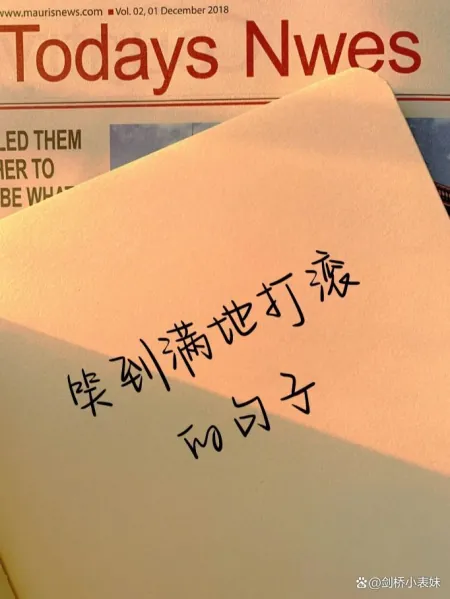 www.maurisnews.com ■ Vol. 02, 01 December 2018
Todays Nwes
LED THEM
HER TO
BE WHA
哭到满地打滚
的句子
剑桥小表妹